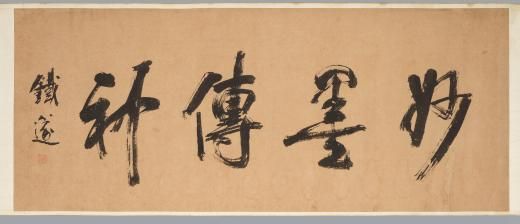 妙墨傳神
鐵